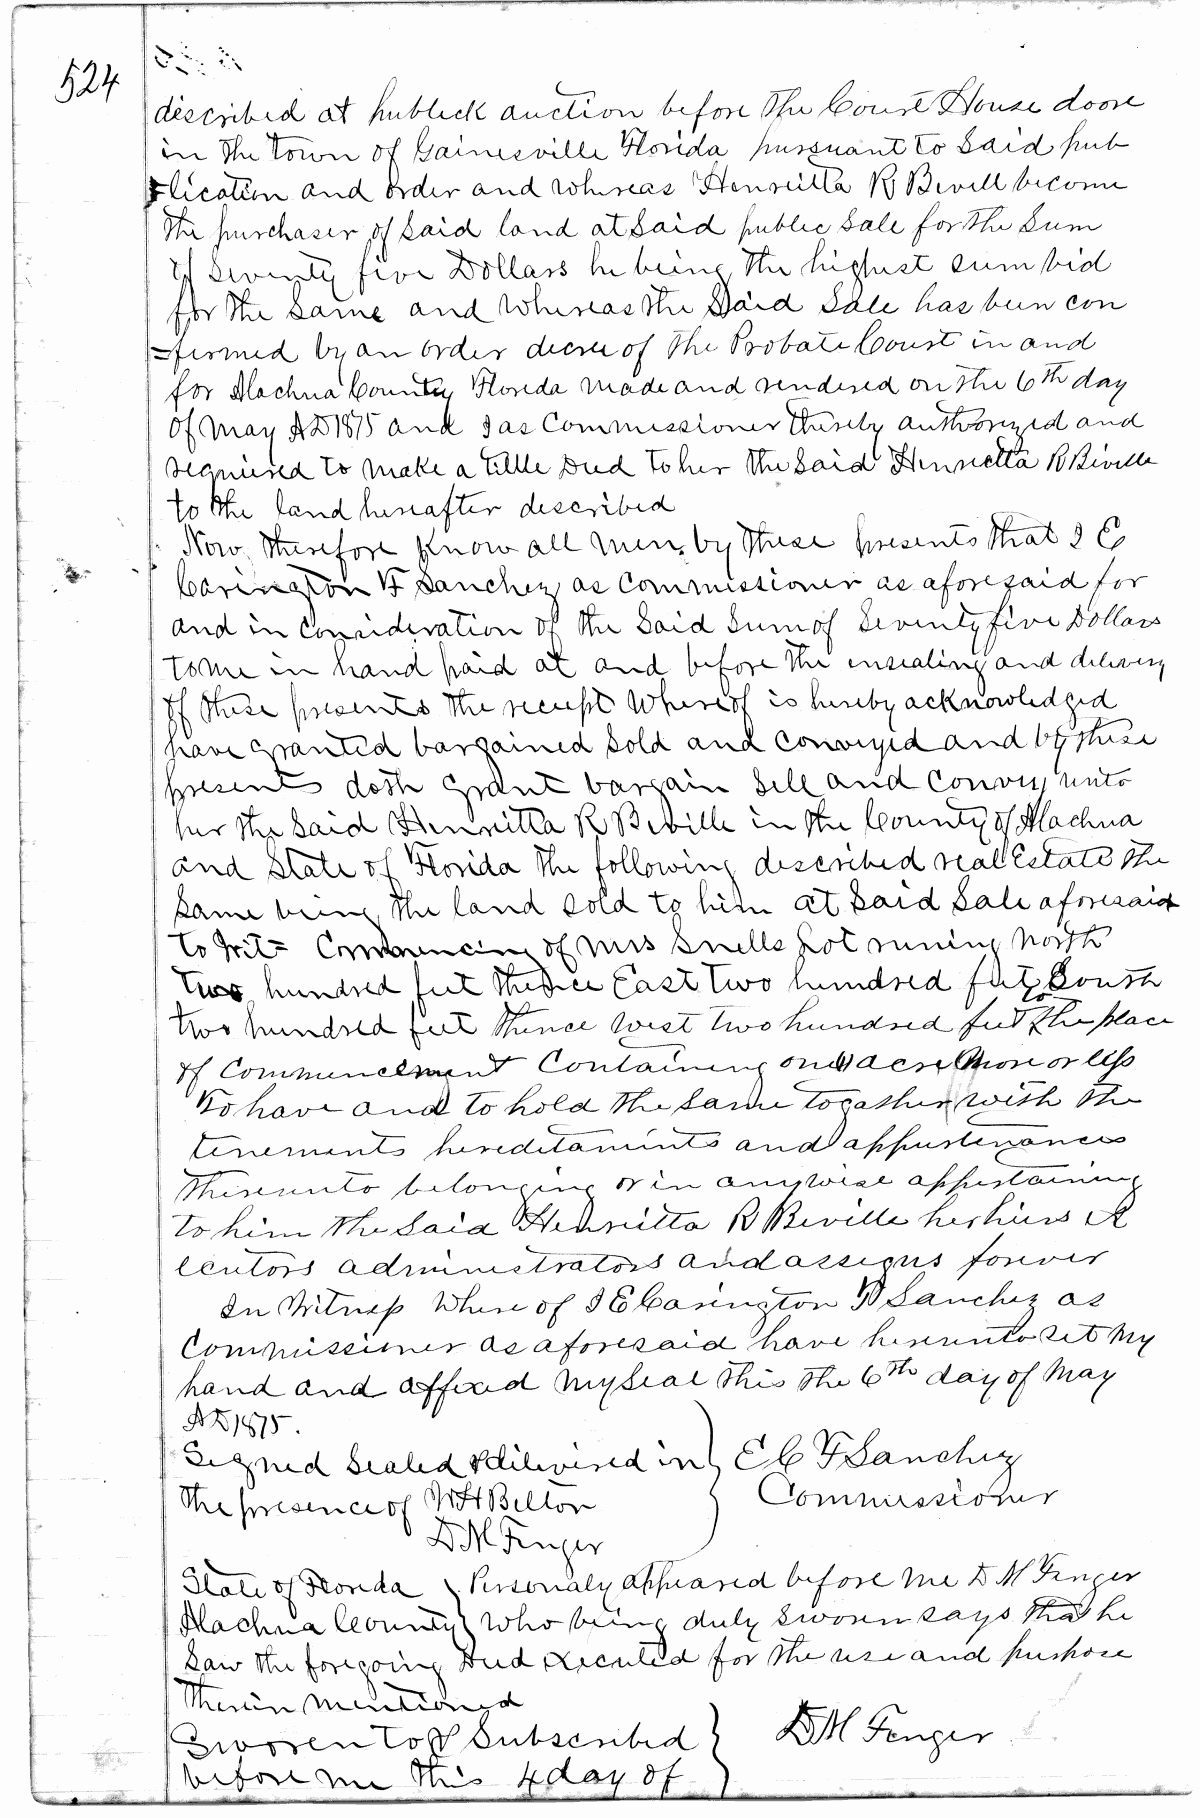 524
discribed at publick auction before the Court House doore
in the town of Gainesville Florida pursuant to Said pub
lication and order and whereas Henrietta R Bevill become
the purchaser of Said land at Said public Sale for the Sum
of Seventy five Dollars he being the highest sum bid
for the Same and Whereas the Said Sale has been con
=firmed by an order decree of the Probate Court in and
for Alachua County Florida made and rendered on the 6th day
of May AD 1875 and I as Commissioner thereby authorized and
required to make a title Deed to her the Said Henrietta R Biville
to the land hereafter described
Now, therefore Know all men by these presents that I E
Carington F Sanchez as Commissioner as aforesaid for
and in consideration of the Said Sum of Seventy five Dollars
to me in hand paid at and before the ensealing and delivery
of these presents the receipt Whereof is hereby acknowledged
have granted bargained Sold and Conveyed and by these
presents doth grant bargain Sell and Convey unto
her the Said Henrietta R Beville in the County of Alachua
and State of Florida the following described real Estate the
Same being the land sold to him at Said Sale aforesaid
to Wit= Commencing of Mrs Snells Lot runing North
two hundred feet thence East two hundred feet South
two hundred feet thence West two hundred feet to the place
of Commencement Containing one acre More or less
To have and to hold the Same togather with the
tenements hereditamints and appurtenances
thereunto belonging or in anywise appertaining
to him the Said Henrietta R Beville her hiers
ecutors administrators and assigns forever
In Witness Where of I E Carington F Sanchez as
Commissioner as aforesaid have hereunto set My
hand and affixed My Seal this the 6th day of May
AD 1875.
Signed Sealed & delivered in } E C F Sanchez
the presence of W H Belton Commissioner
D M Finger
State of Florida } Personaly appeared before me D M Finger
Alachua County } Who being duly Sworn says that he
Saw the foregoing Deed Executed for the use and purpose
Therein mentioned
Sworen to & Subscribed } D M Fenger
before me this 4 day of